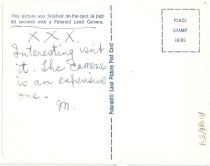 This picture was finished on-the-spot in just
60 seconds with a Polaroid Land Camera.
X X X.
Interesting isn't
it. The camera
is an expensive
one.
M.
Polaroid® Land Picture Post Card
PLACE
STAMP
HERE